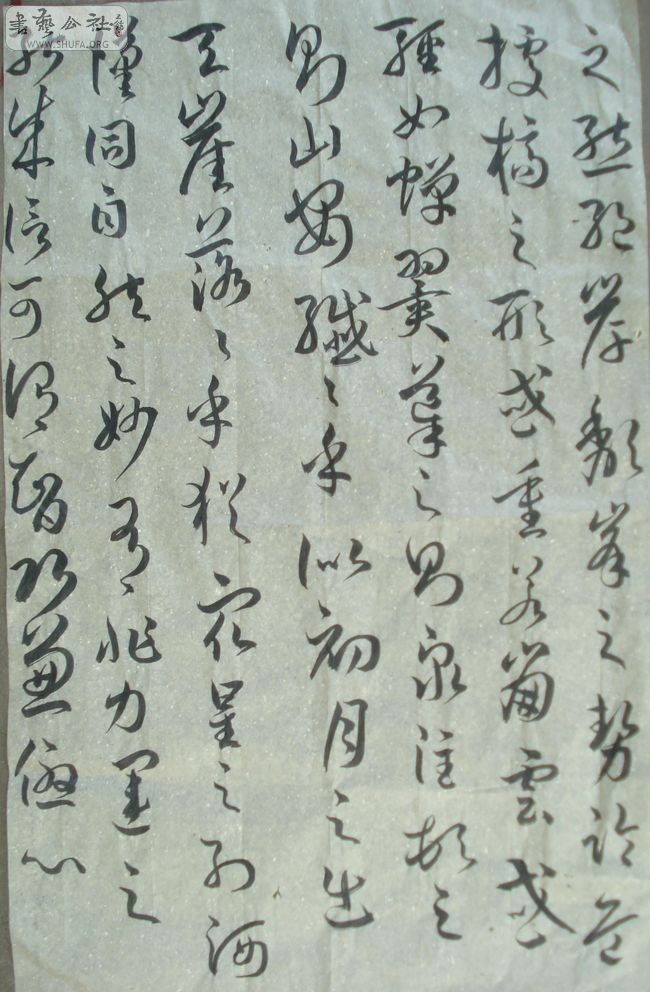 之態絕岸頹峯之勢臨危
據槁之形或重若崩雲或
輕如蟬翼導之則泉注頓之
則山安纖〻乎似初月之出
天崖落〻乎猶眾星之列河
漢同自然之妙有非力運之
能成信可謂智巧兼優心
書藝公社
WWW.SHUFA.ORG